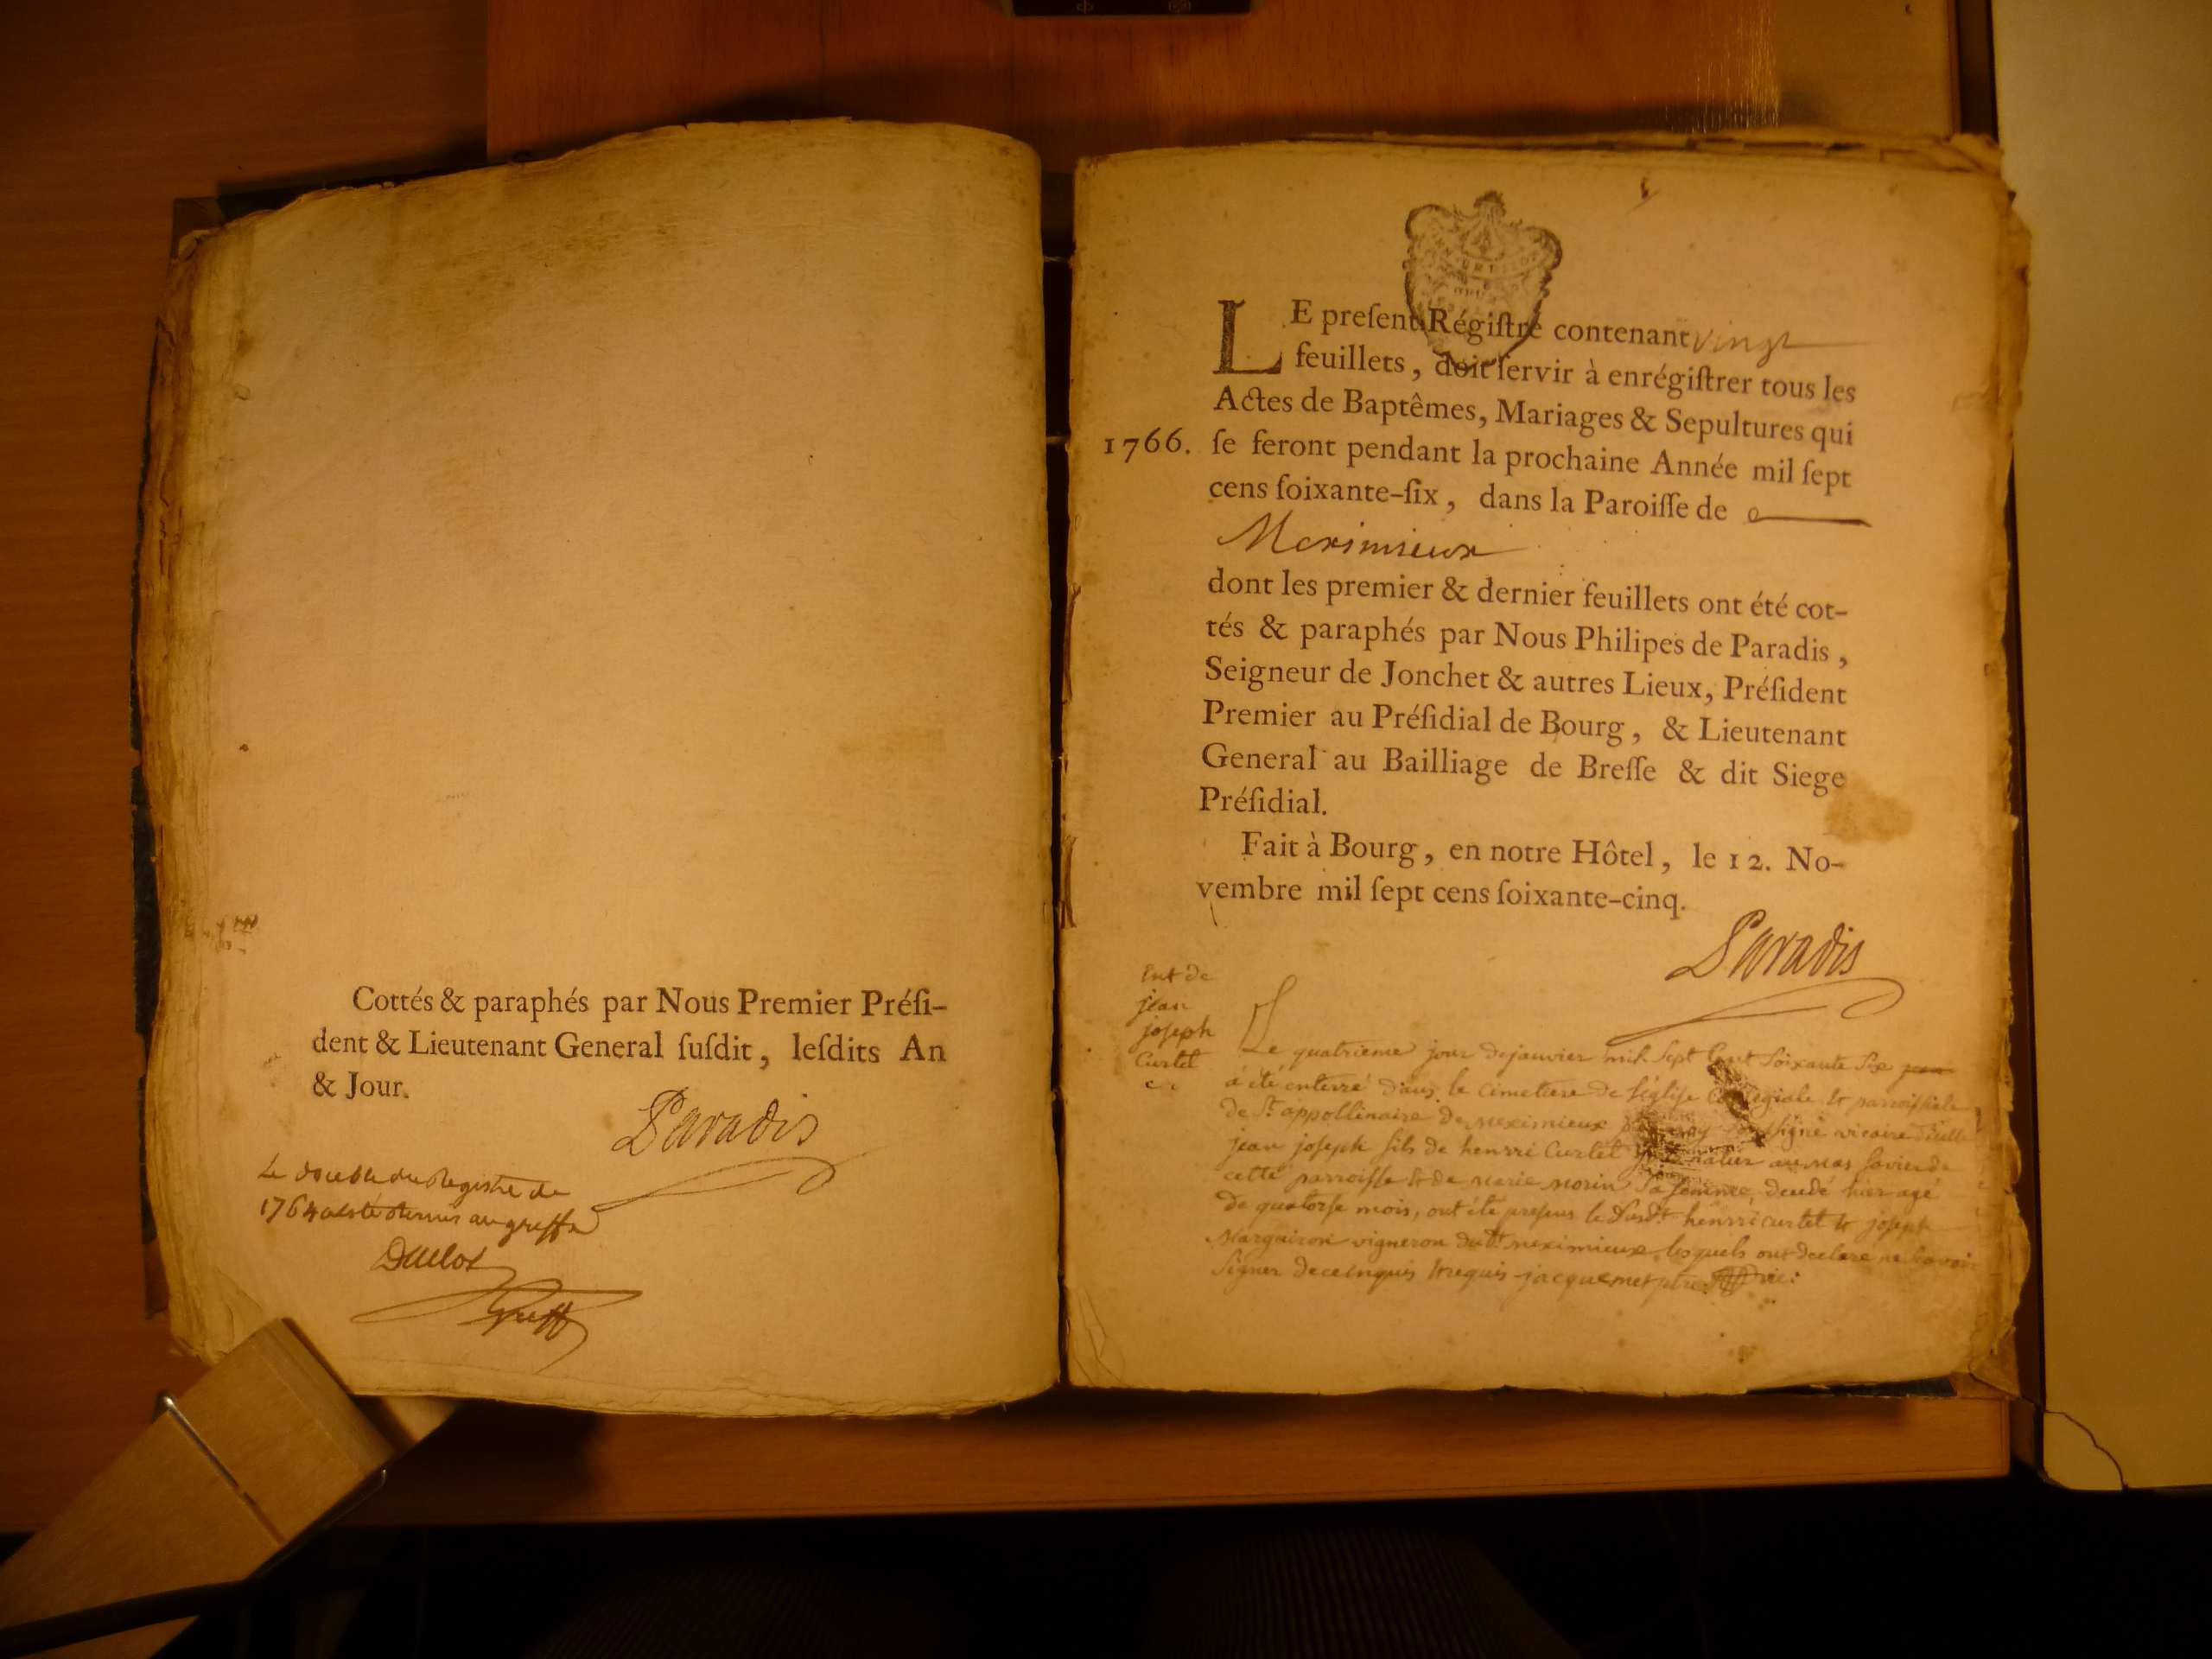 Cottés & paraphés par Nous Premier Préſi-
dent & Lieutenant General ſuſdit, leſdits An
& Jour.
Paradis
Le double du Registre de
1764 a esté remis au greffe
Duclos
Greff
LE preſent Régiſtre contenant vingt
feuillets, doit ſervir à enrégiſtrer tous les
Actes de Baptêmes, Mariages & Sepultures qui
1766. ſe feront pendant la prochaine Année mil ſept
cens ſoixante-ſix, dans la Paroiſſe de
Meximieux
dont les premier & dernier feuillets ont été cot-
tés & paraphés par Nous Philipes de Paradis,
Seigneur de Jonchet & autres Lieux, Préſident
Premier au Préſidial de Bourg, & Lieutenant
General au Bailliage de Breſſe & dit Siege
Préſidial.
Fait à Bourg, en notre Hôtel, le 12. No-
vembre mil ſept cens ſoixante-cinq.
Paradis
Ent de
jean
joseph
Curtet
Le quatrieme jour de janvier mil sept cent soixante six
a été enterré dans le cimetiere de l'église Collégiale & parroissiale
de St. appollinaire de meximieux soussigné vicaire
jean joseph fils de henrri Curtet au mas
cette parroisse & de marie morin sa femme, decedé hier agé
de quatorse mois, ont été presens le susdt. henrri curtet & joseph
Marguiron vigneron dudt. meximieux lesquels ont declare ne scavoir
signer de ce enquis & requis jacquemet ptre vic: